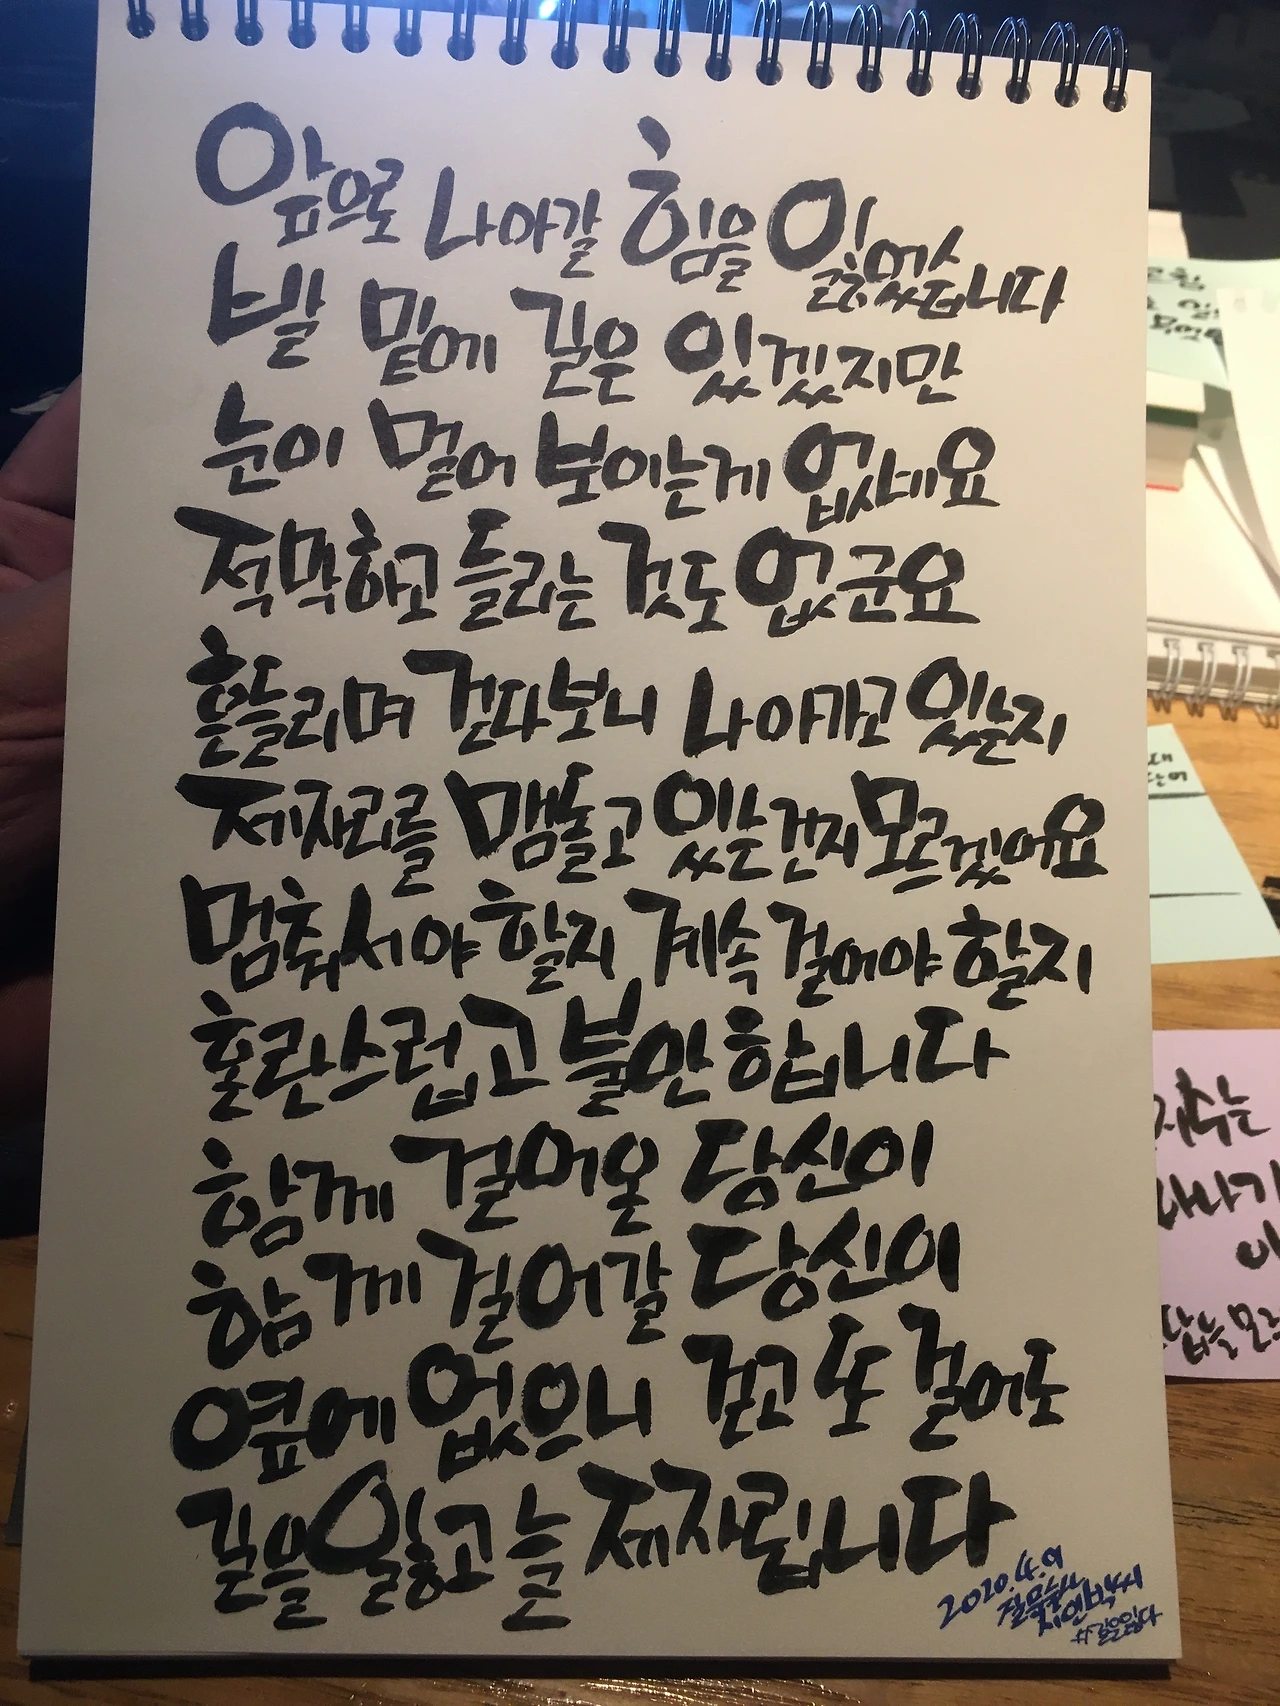 앞으로 나아갈 힘을 잃었습니다
발 밑에 길은 있겠지만
눈이 멀어 보이는게 없네요
적막하고 들리는 것도 없군요
흔들리며 걷다보니 나아가고 있는지
제자리를 맴돌고 있는건지 모르겠어요
멈춰서야 할지 계속 걸어야 할지
혼란스럽고 불안합니다
함께 걸어온 당신이
함께 걸어갈 당신이
옆에 없으니 걷고 또 걸어도
길을 잃고는 제자립니다
2020.4.9
지연박사
#길을잃다
지수는